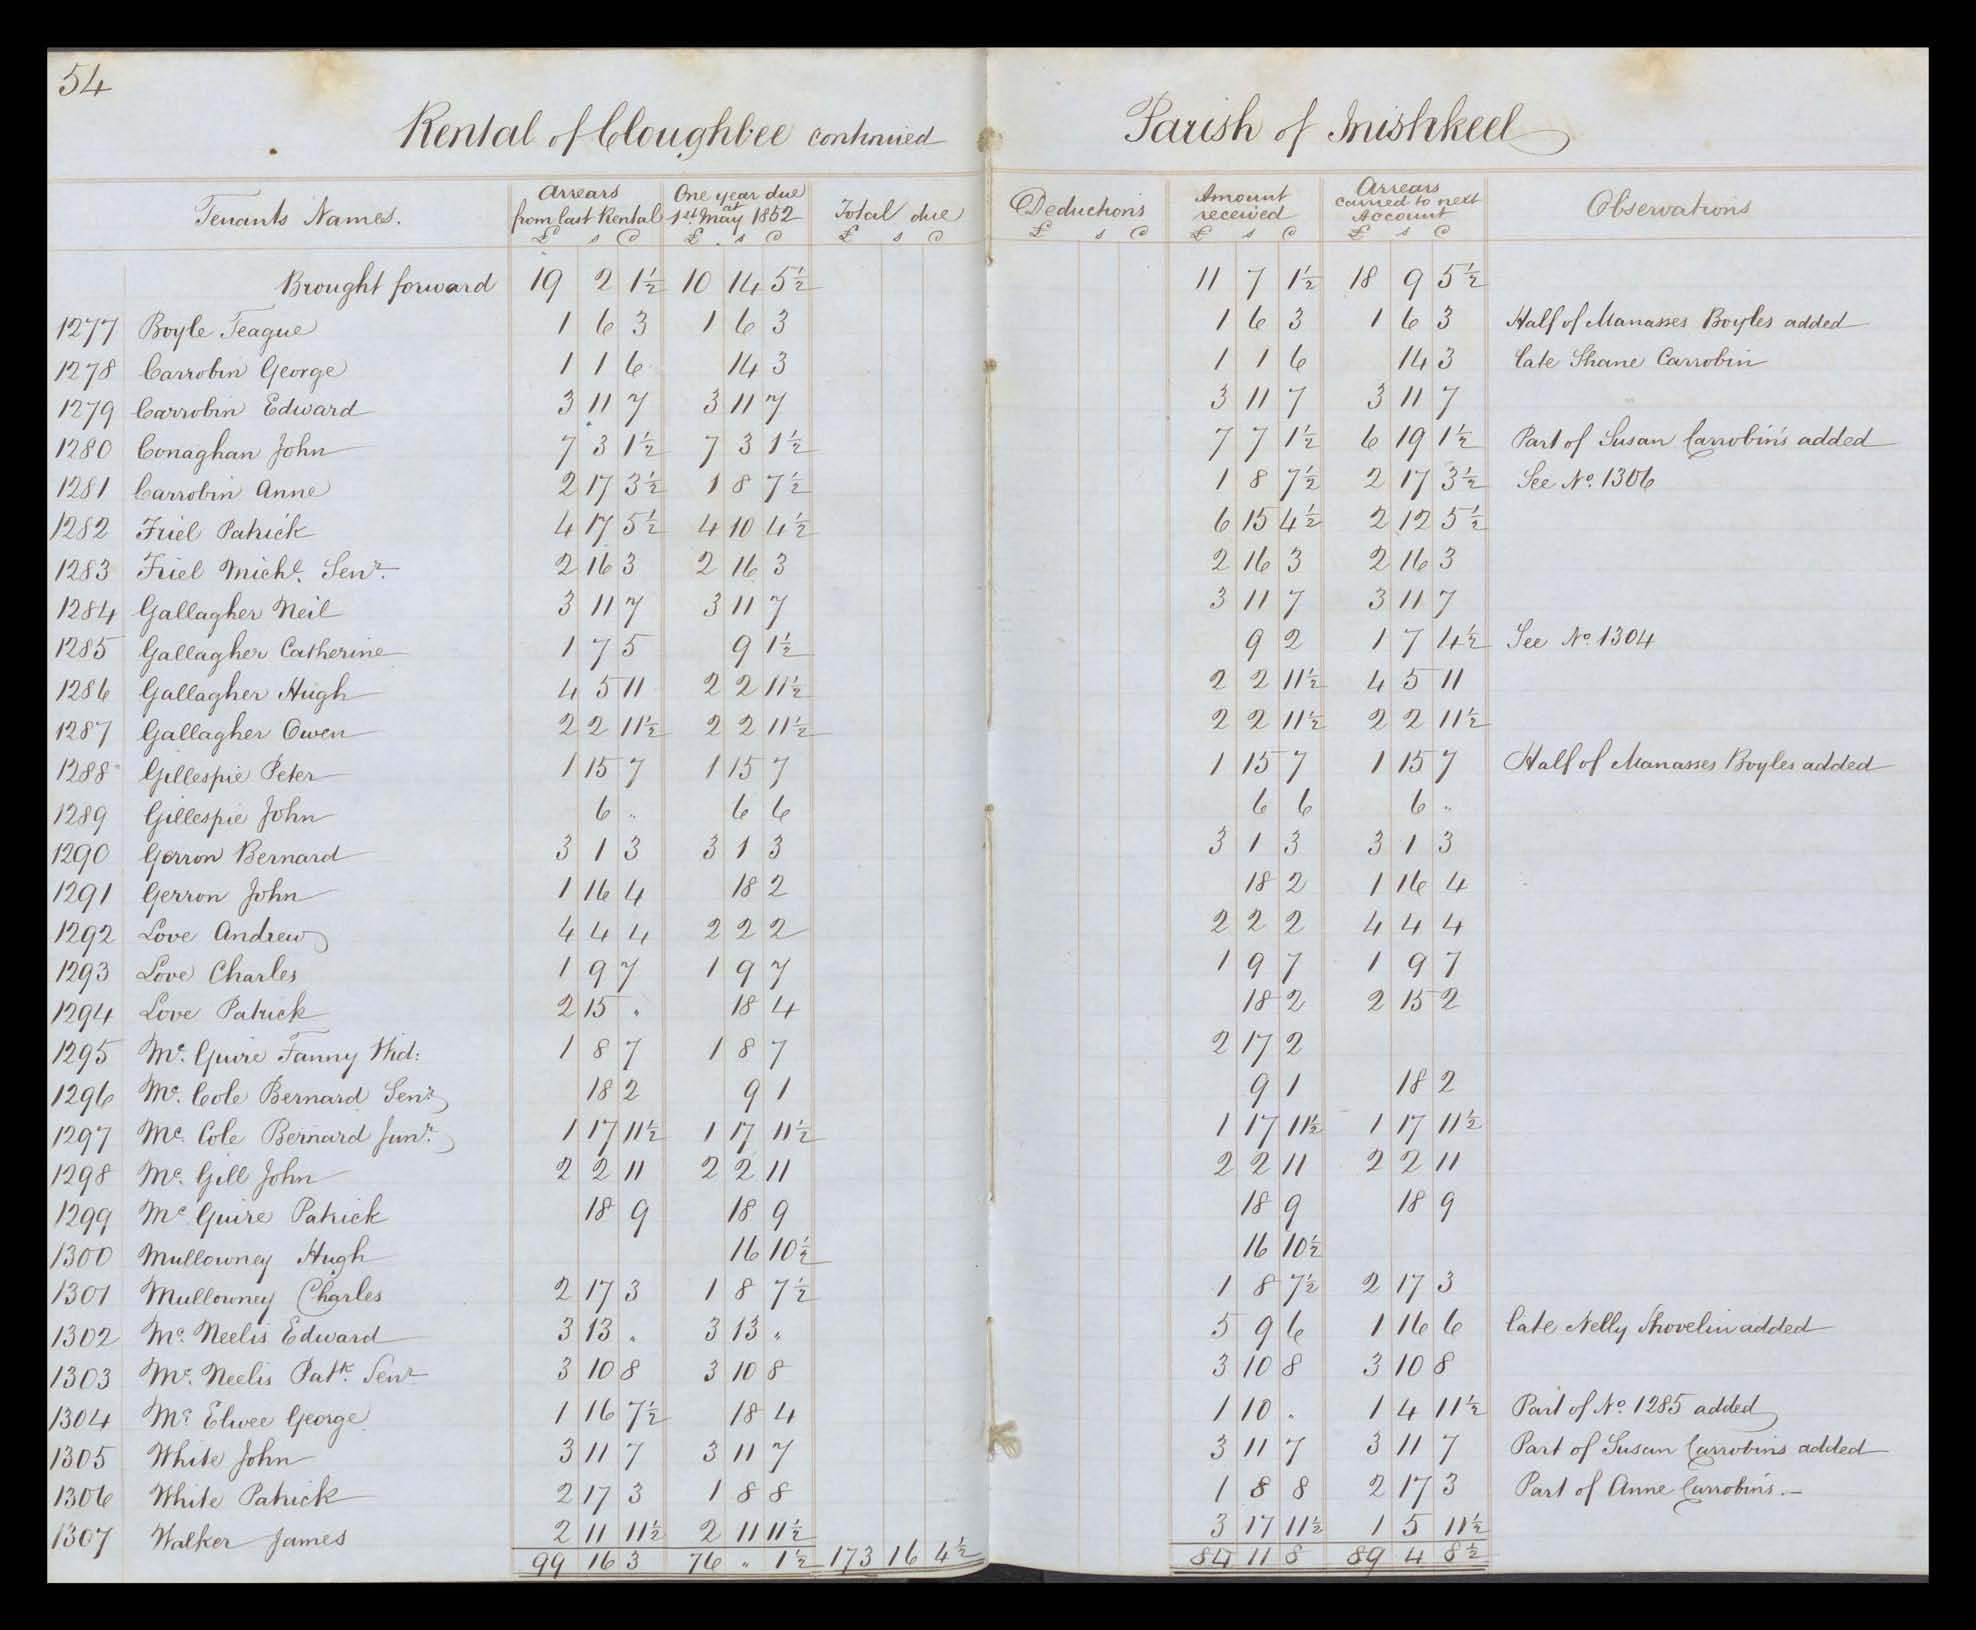 54
Rental of Cloughbee continued Parish of Inishkeel
Tenants Names. Arrears from last Rental One year due at 1st May 1852 Total due Deductions Amount received Arrears carried to next Account Observations
£ s d £ s d £ s d £ s d £ s d £ s d
Brought forward 19 2 1½ 10 14 5½ 11 7 1½ 18 9 5½
1277 Boyle Teague 1 6 3 1 6 3 1 6 3 1 6 3 Half of Manasses Boyles added
1278 Carrobin George 1 1 6 14 3 1 1 6 14 3 late Shane Carrobin
1279 Carrobin Edward 3 11 7 3 11 7 3 11 7 3 11 7
1280 Conaghan John 7 3 1½ 7 3 1½ 7 7 1½ 6 19 1½ Part of Susan Carrobin's added
1281 Carrobin Anne 2 17 3½ 1 8 7½ 1 8 7½ 2 17 3½ See No. 1306
1282 Friel Patrick 4 17 5½ 4 10 4½ 6 15 4½ 2 12 5½
1283 Friel Michl. Senr. 2 16 3 2 16 3 2 16 3 2 16 3
1284 Gallagher Neil 3 11 7 3 11 7 3 11 7 3 11 7
1285 Gallagher Catherine 1 7 5 9 1½ 9 2 1 7 4½ See No. 1304
1286 Gallagher Hugh 4 5 11 2 2 11½ 2 2 11½ 4 5 11
1287 Gallagher Owen 2 2 11½ 2 2 11½ 2 2 11½ 2 2 11½
1288 Gillespie Peter 1 15 7 1 15 7 1 15 7 1 15 7 Half of Manasses Boyles added
1289 Gillespie John 6 " 6 6 6 6 6 "
1290 Gerron Bernard 3 1 3 3 1 3 3 1 3 3 1 3
1291 Gerron John 1 16 4 18 2 18 2 1 16 4
1292 Love Andrew 4 4 4 2 2 2 2 2 2 4 4 4
1293 Love Charles 1 9 7 1 9 7 1 9 7 1 9 7
1294 Love Patrick 2 15 " 18 4 18 2 2 15 2
1295 Mc. Guire Fanny Wid: 1 8 7 1 8 7 2 17 2
1296 Mc. Cole Bernard Senr. 18 2 9 1 9 1 18 2
1297 Mc. Cole Bernard Junr. 1 17 11½ 1 17 11½ 1 17 11½ 1 17 11½
1298 Mc. Gill John 2 2 11 2 2 11 2 2 11 2 2 11
1299 Mc Guire Patrick 18 9 18 9 18 9 18 9
1300 Mullowney Hugh 16 10½ 16 10½
1301 Mullowney Charles 2 17 3 1 8 7½ 1 8 7½ 2 17 3
1302 Mc. Neelis Edward 3 13 " 3 13 " 5 9 6 1 16 6 late Nelly Shovelin added
1303 Mc. Neelis Patk. Senr 3 10 8 3 10 8 3 10 8 3 10 8
1304 Mc. Elwee George 1 16 7½ 18 4 1 10 " 1 4 11½ Part of No. 1285 added
1305 White John 3 11 7 3 11 7 3 11 7 3 11 7 Part of Susan Carrobins added
1306 White Patrick 2 17 3 1 8 8 1 8 8 2 17 3 Part of Anne Carrobin's.—
1307 Walker James 2 11 11½ 2 11 11½ 3 17 11½ 1 5 11½
99 16 3 76 " 1½ 173 16 4½ 84 11 8 89 4 8½